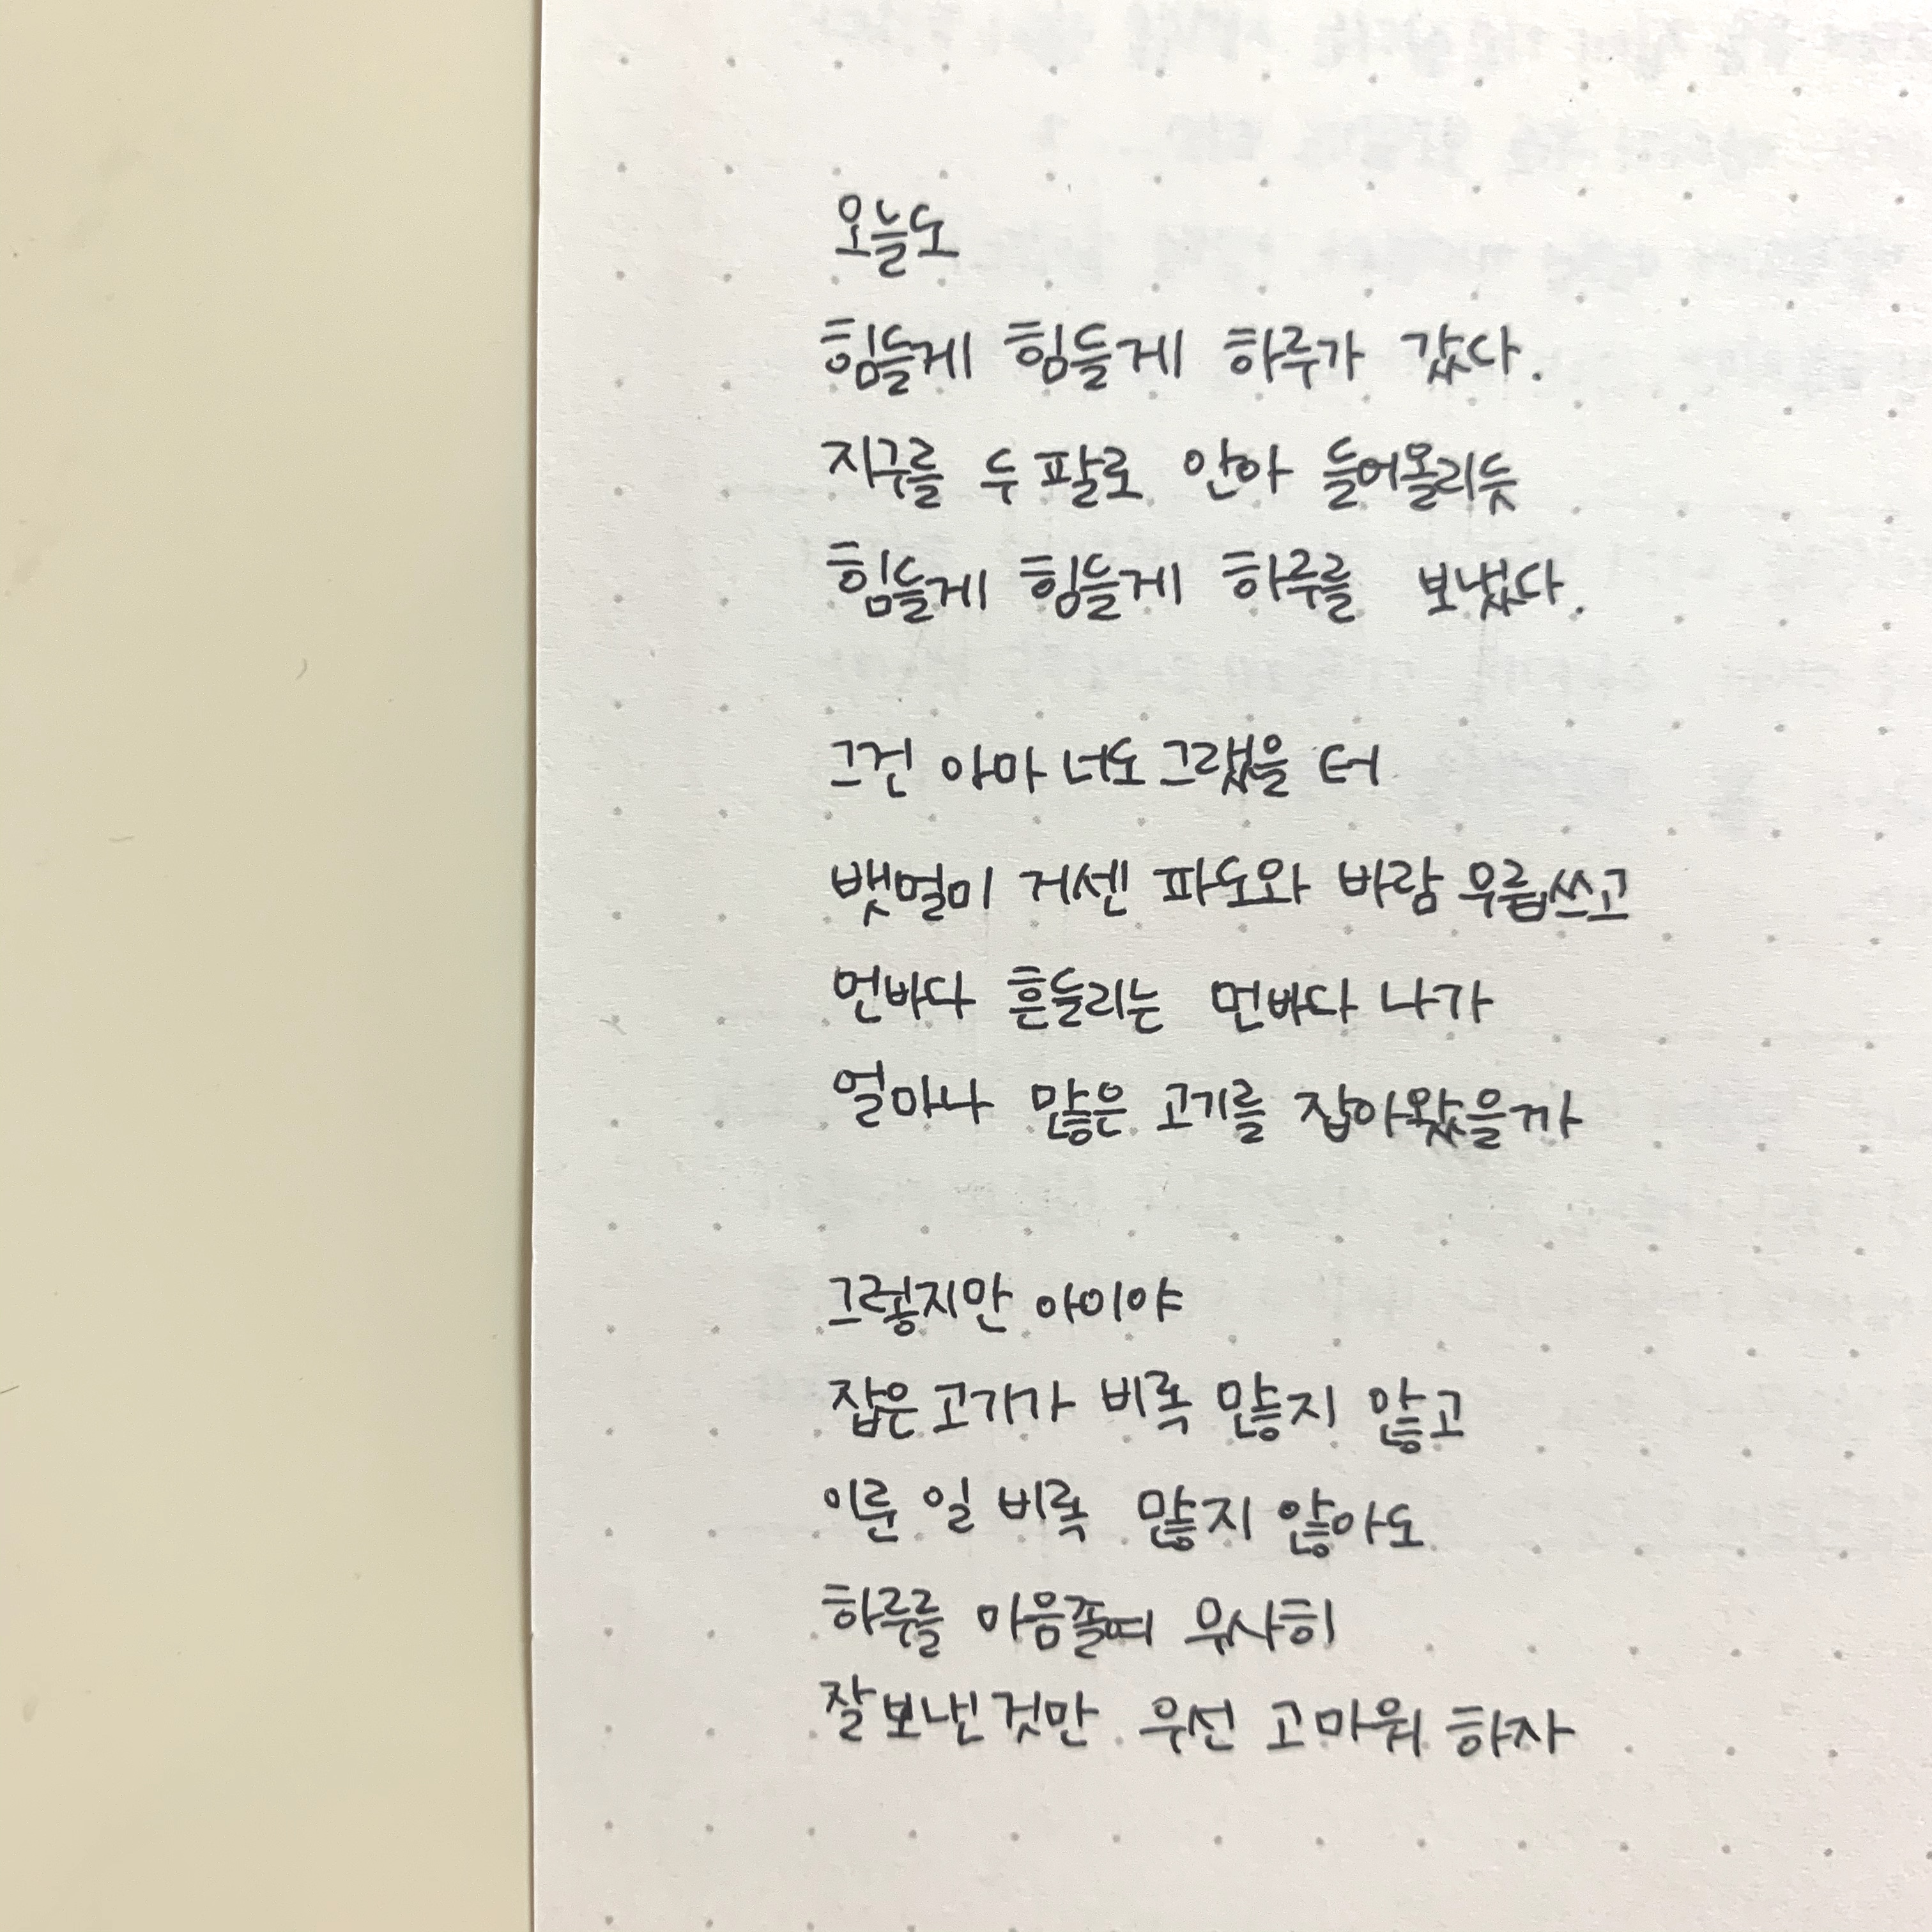 오늘도
힘들게 힘들게 하루가 갔다.
지구를 두 팔로 안아 들어올리듯
힘들게 힘들게 하루를 보냈다.
그건 아마 너도 그랬을 터
뱃멀미 거센 파도와 바람 우릅쓰고
먼바다 흔들리는 먼바다 나가
얼마나 많은 고기를 잡아왔을까
그렇지만 아이야
잡은 고기가 비록 많지 않고
이룬 일 비록 많지 않아도
하루를 마음졸여 무사히
잘 보낸 것만 우선 고마워 하자